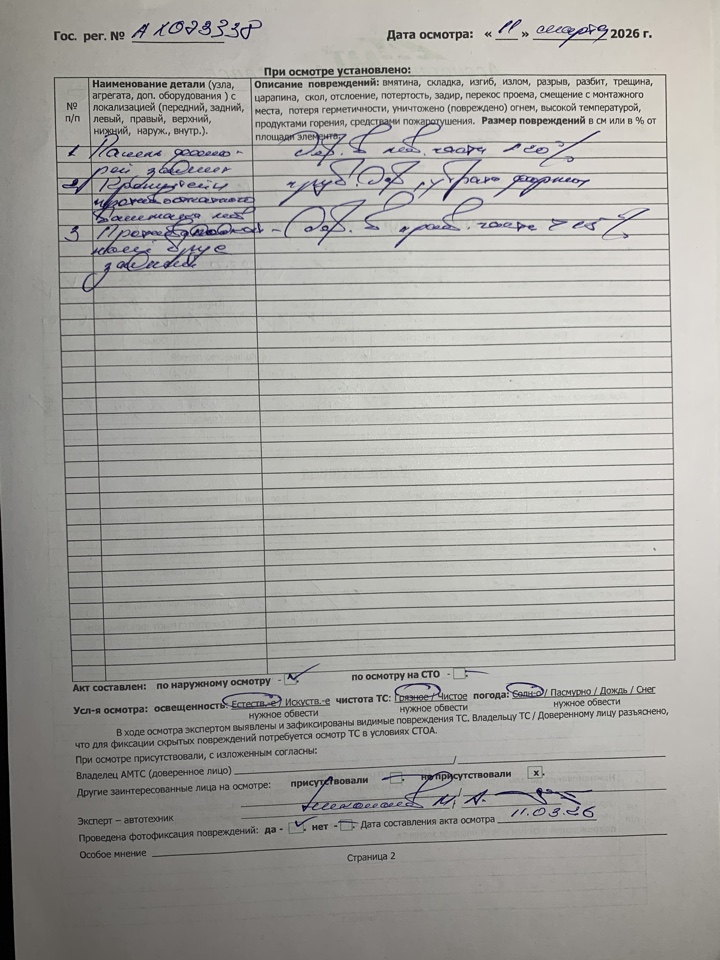 Гос. рег. № АХ023338 Дата осмотра: « 11 » марта 2026 г.
При осмотре установлено:
№ п/п
Наименование детали (узла, агрегата, доп. оборудования ) с локализацией (передний, задний, левый, правый, верхний, нижний, наруж., внутр.).
Описание повреждений: вмятина, складка, изгиб, излом, разрыв, разбит, трещина, царапина, скол, отслоение, потертость, задир, перекос проема, смещение с монтажного места, потеря герметичности, уничтожено (повреждено) огнем, высокой температурой, продуктами горения, средствами пожаротушения. Размер повреждений в см или в % от площади элемента.
1 Панель фона-
рей задняя
деф. в лев. части
2 Кронштейн
деф., утрата формы
3
деф. в прав. части
Акт составлен: по наружному осмотру - по осмотру на СТО -
Усл-я осмотра: освещенность: Естеств.-е / Искуств.-е чистота ТС: Грязное / Чистое погода: Солн-о / Пасмурно / Дождь / Снег
нужное обвести нужное обвести нужное обвести
В ходе осмотра экспертом выявлены и зафиксированы видимые повреждения ТС. Владельцу ТС / Доверенному лицу разъяснено,
что для фиксации скрытых повреждений потребуется осмотр ТС в условиях СТОА.
При осмотре присутствовали, с изложенным согласны:
Владелец АМТС (доверенное лицо) /
Другие заинтересованные лица на осмотре: присутствовали - не присутствовали x .
Эксперт – автотехник
Проведена фотофиксация повреждений: да - нет - Дата составления акта осмотра 11.03.26
Особое мнение
Страница 2